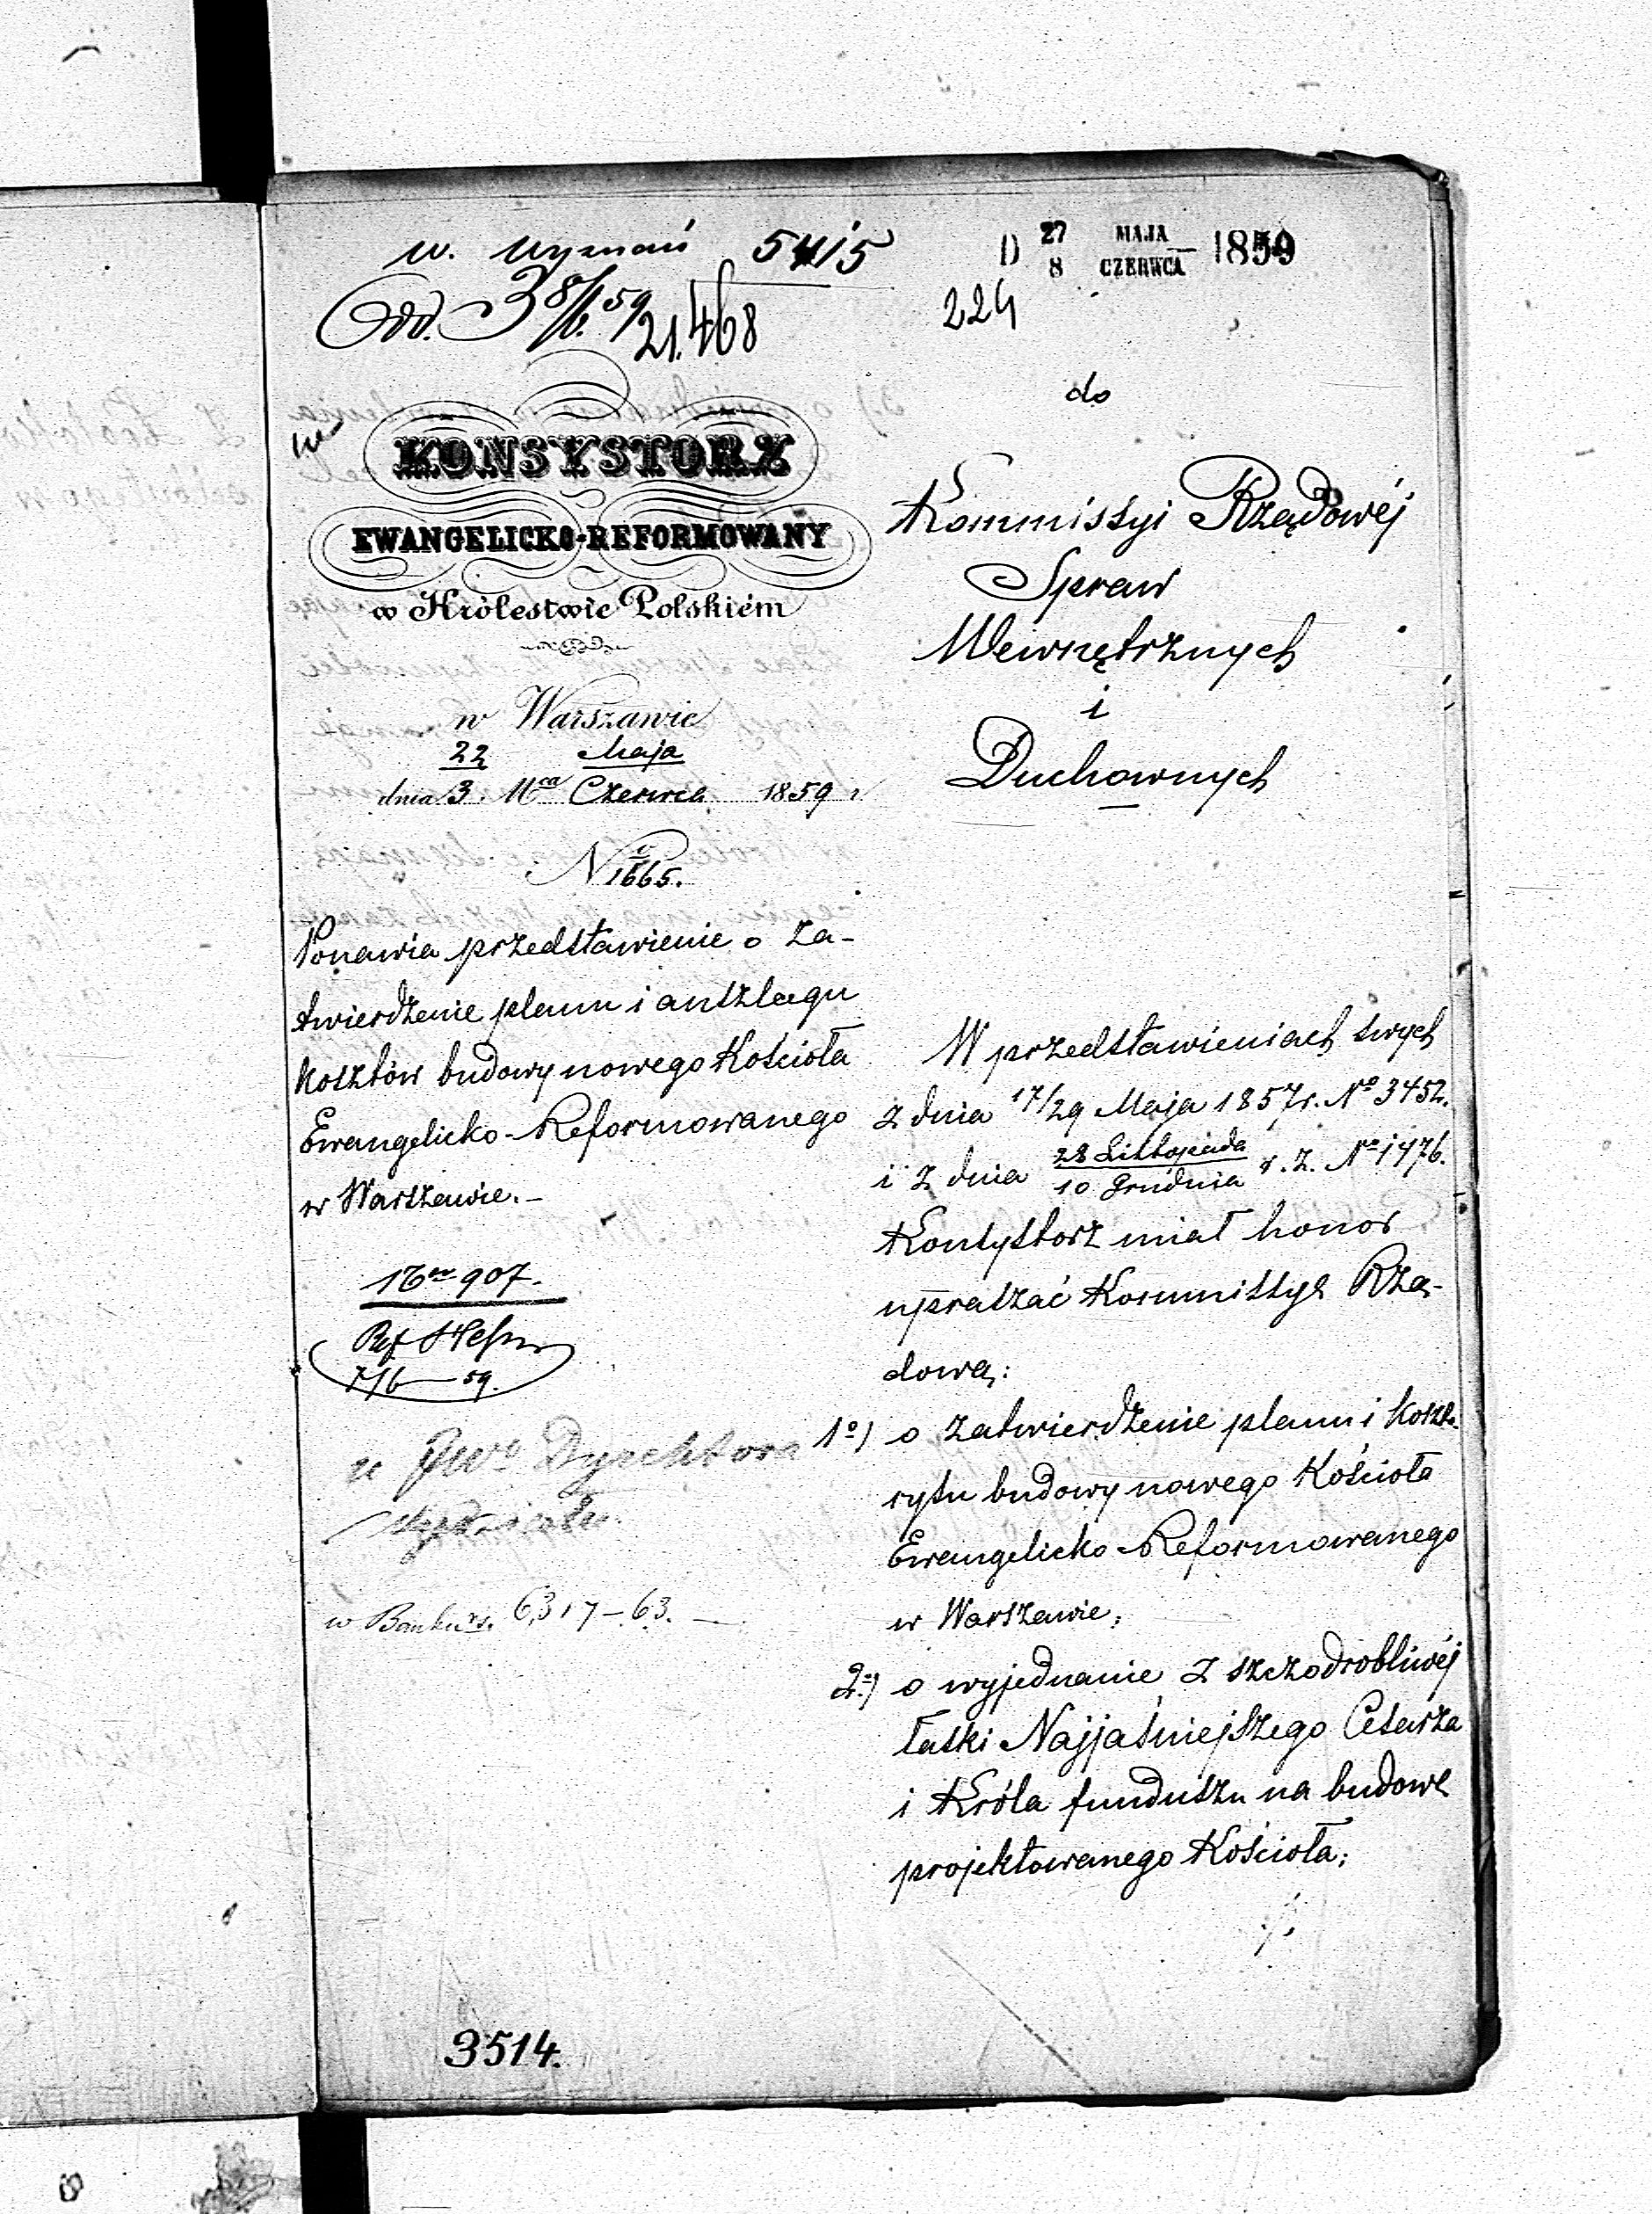 w. wyznań 5415
D 27/8 MAJA/CZERWCA — 1859
Odd. 3 8/6 59
21.468
224
KONSYSTORZ
EWANGELICKO-REFORMOWANY
w Królestwie Polskiém
w Warszawie
dnia 22/3. Mca Maja/Czerwca 1859 r
No 1665.
Ponawia przedstawienie o za-
twierdzenie planu i anszlagu
kosztów budowy nowego Kościoła
Ewangelicko-Reformowanego
w Warszawie.-
907.
Ref
7/6 — 59.
u JWo Dyrektora
Wydziału
w Banku rs. 6,317 — 63. —
3514.
do
Kommissyi Rządowéj
Spraw
Wewnętrznych
i
Duchownych
W przedstawieniach swych
z dnia 17/29 Maja 1857 r. No 3452.
i z dnia 28 Listopada/10 Grudnia r. z. No 1476.
Konsystorz miał honor
upraszać Kommissyę Rzą-
dową:
1o) o zatwierdzenie planu i koszto-
rysu budowy nowego Kościoła
Ewangelicko-Reformowanego
w Warszawie;
2o) o wyjednanie z szczodrobliwéj
łaski Najjaśniejszego Cesarza
i Króla funduszu na budowę
projektowanego Kościoła;